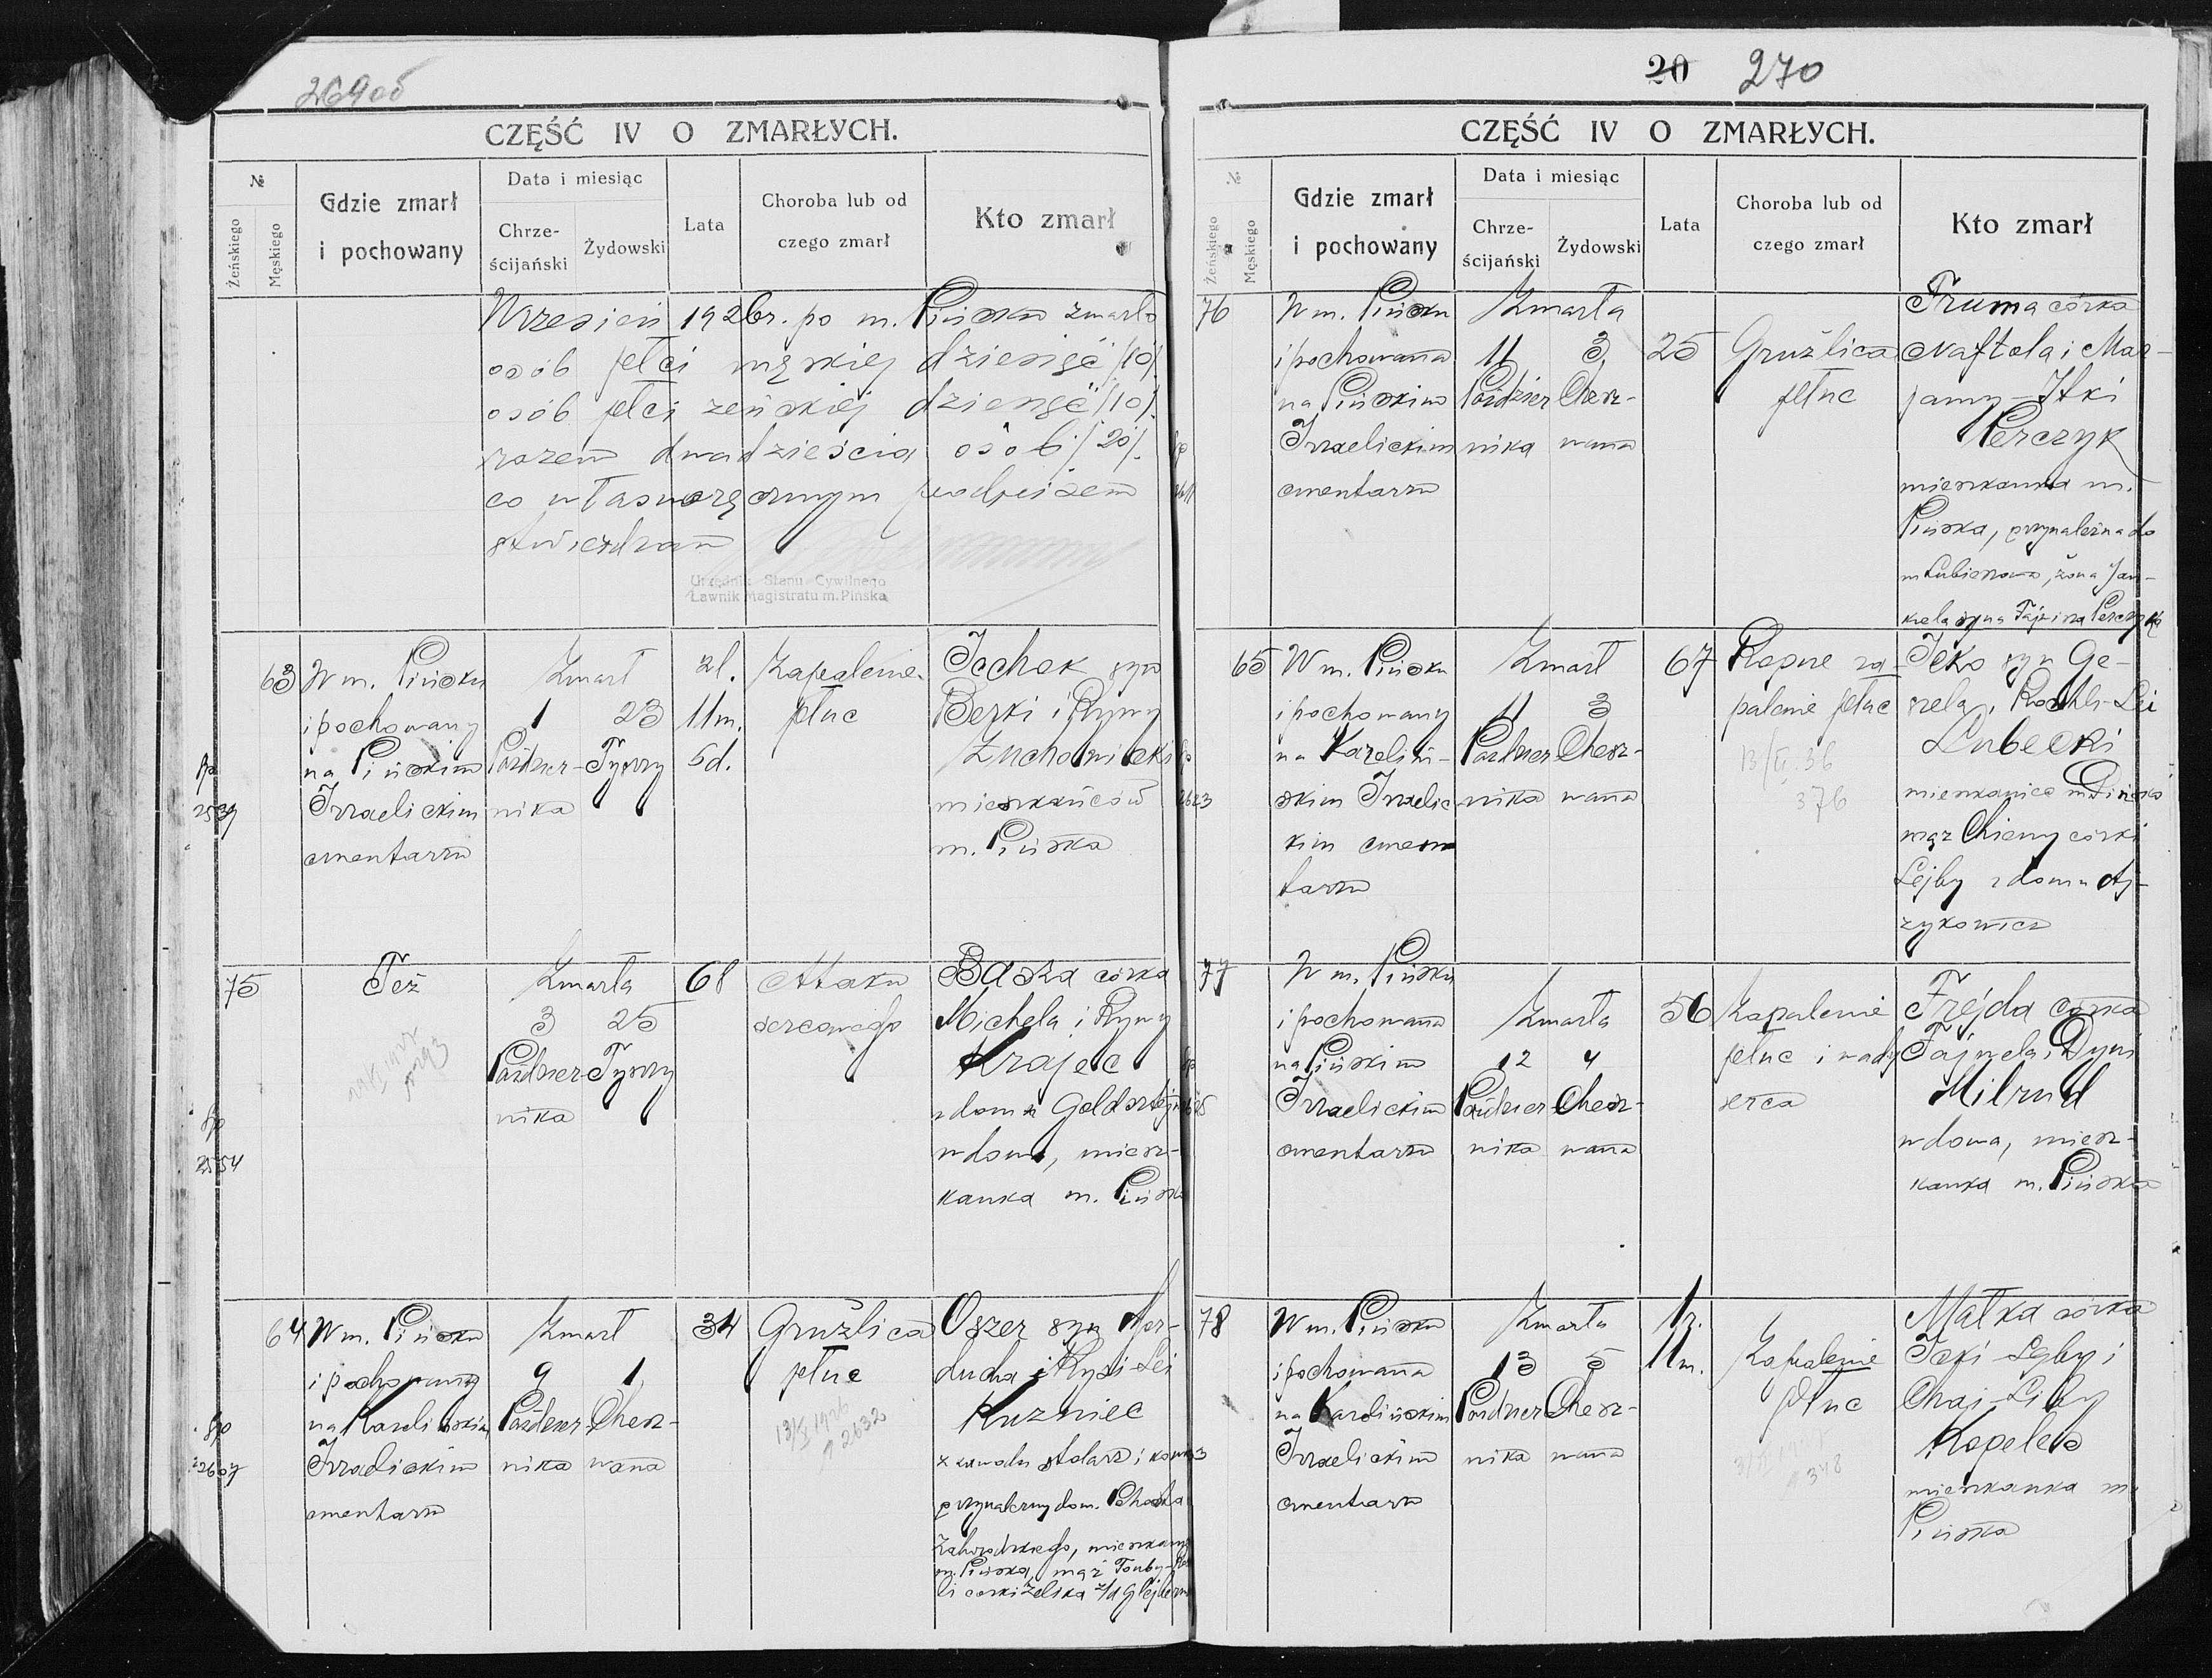 CZĘŚĆ IV O ZMARŁYCH.
№
Żeńskiego
Męskiego
Gdzie zmarł
i pochowany
Data i miesiąc
Chrze-
ścijański
Żydowski
Lata
Choroba lub od
czego zmarł
Kto zmarł
Wrzesień 1926r. po m. Pińsku zmarło
osób płci męskiej dziesięć /10/.
osób płci żeńskiej dziesięć /10/.
razem dwadzieścia osób /20/.
co własnoręcznym podpisem
stwierdzam
Urzędnik Stanu Cywilnego
Ławnik Magistratu m. Pińska
63
W m. Pińsku
i pochowany
na Pińskim
Izraelickim
cmentarzu
Zmarł
1 23
Paździer- Tyszry
nika
2l.
11m.
5d.
Zapalenie
płuc
Icchok syn
Berki i Rywy
Zuchowicki
mieszkańców
m. Pińska
75
Też
Zmarła
3 25
Paździer- Tyszry
nika
68
Ataku
sercowego
Baszka córka
Michela i Rywy
Krajec
z domu Goldsztejn
wdowa, miesz-
kanka m. Pińska
2554
64
W m. Pińsku
i pochowany
na Karolińskim
Izraelickim
cmentarzu
Zmarł
9 1
Paździer- Chesz-
nika wana
34
Gruźlica
płuc
13/X 1926
2632
Oszer syn Mor-
ducha i Rysi-Lei
Kuzniec
z zawodu stolarz
przynależny do m.
Zahorodzkiego, mieszkaniec
m. Pińska, mąż Tauby-
li córki Zelika z/d
2607
20 270
CZĘŚĆ IV O ZMARŁYCH.
№
Żeńskiego
Męskiego
Gdzie zmarł
i pochowany
Data i miesiąc
Chrze-
ścijański
Żydowski
Lata
Choroba lub od
czego zmarł
Kto zmarł
76
W m. Pińsku
i pochowana
na Pińskim
Izraelickim
cmentarzu
Zmarła
11 3
Paździer Chesz-
nika wana
25
Gruźlica
płuc
Fruma córka
Naftola i Mar-
jamy-Itki
Perczyk
mieszkanka m.
Pińska, przynależna do
m Lubieszowa, żona Jan-
kiela syna Fajwisza Perczyka
65
W m. Pińsku
i pochowany
na Karoliń-
skim Izraelic-
kim cmen
tarzu
Zmarł
11 3
Paździer- Chesz-
nika wana
67
Ropne za-
palenie płuc
376
Icko syn Ge-
szela i Rochli-Lei
Lubecki
mieszkaniec m Pińska
mąż Chieny córki
Lejby z domu Aj-
zykowicz
2623
77
W m. Pińsku
i pochowana
na Pińskim
Izraelickim
cmentarzu
Zmarła
12 4
Paździer- Chesz-
nika wana
56
Zapalenie
płuc i wady
serca
Frejda córka
Fajwela i Dyni
Milrud
wdowa, miesz-
kanka m. Pińska
78
W m. Pińsku
i pochowana
na Karolińskim
Izraelickim
cmentarzu
Zmarła
13 5
Paździer- Chesz-
nika wana
1r.
11m.
Zapalenie
płuc
348
Małka córka
Icki-Lejby i
Chai-Liby
Kopelew
mieszkanka m.
Pińska